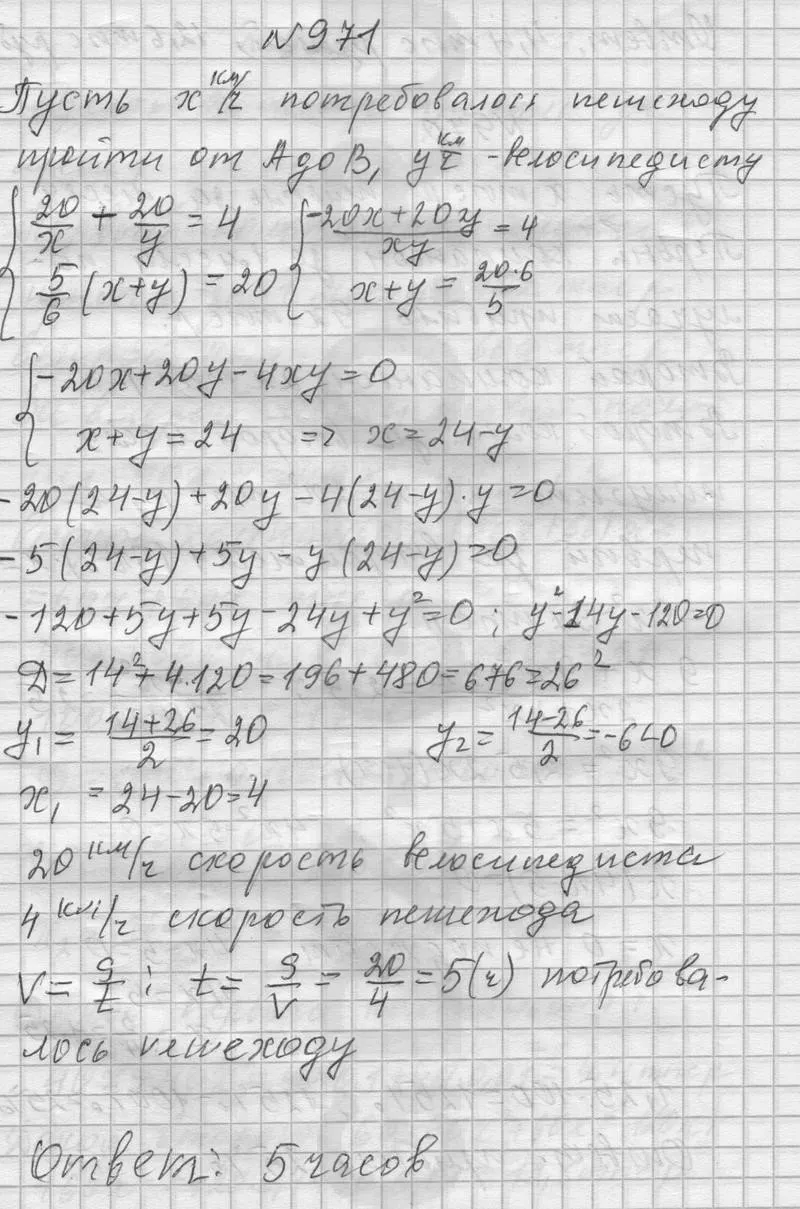 N971
Пусть x км/ч потребовалось пешеходу
пройти от А до В, y км/ч -велосипедисту
{ 20/x + 20/y = 4 { (-20x+20y)/xy = 4
{ 5/6 (x+y) = 20 { x+y = 20·6/5
{ -20x+20y-4xy=0
{ x+y=24 => x=24-y
-20(24-y)+20y-4(24-y)·y=0
-5(24-y)+5y-y(24-y)=0
-120+5y+5y-24y+y²=0; y²-14y-120=0
Д=14²+4.120=196+480=676=26²
y₁= (14+26)/2 = 20 y₂= (14-26)/2 =-6<0
x₁ =24-20=4
20 км/ч скорость велосипедиста
4 км/ч скорость пешехода
V= S/t; t= S/V = 20/4 =5(ч) потребова-
лось пешеходу
Ответ: 5 часов